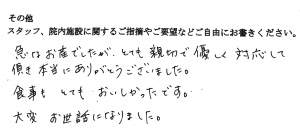 その他
スタッフ、院内施設に関するご指摘やご要望などご自由にお書きください。
急なお産でしたが、とても親切で優しく対応して
頂き本当にありがとうございました。
食事も とても おいしかったです。
大変 お世話になりました。